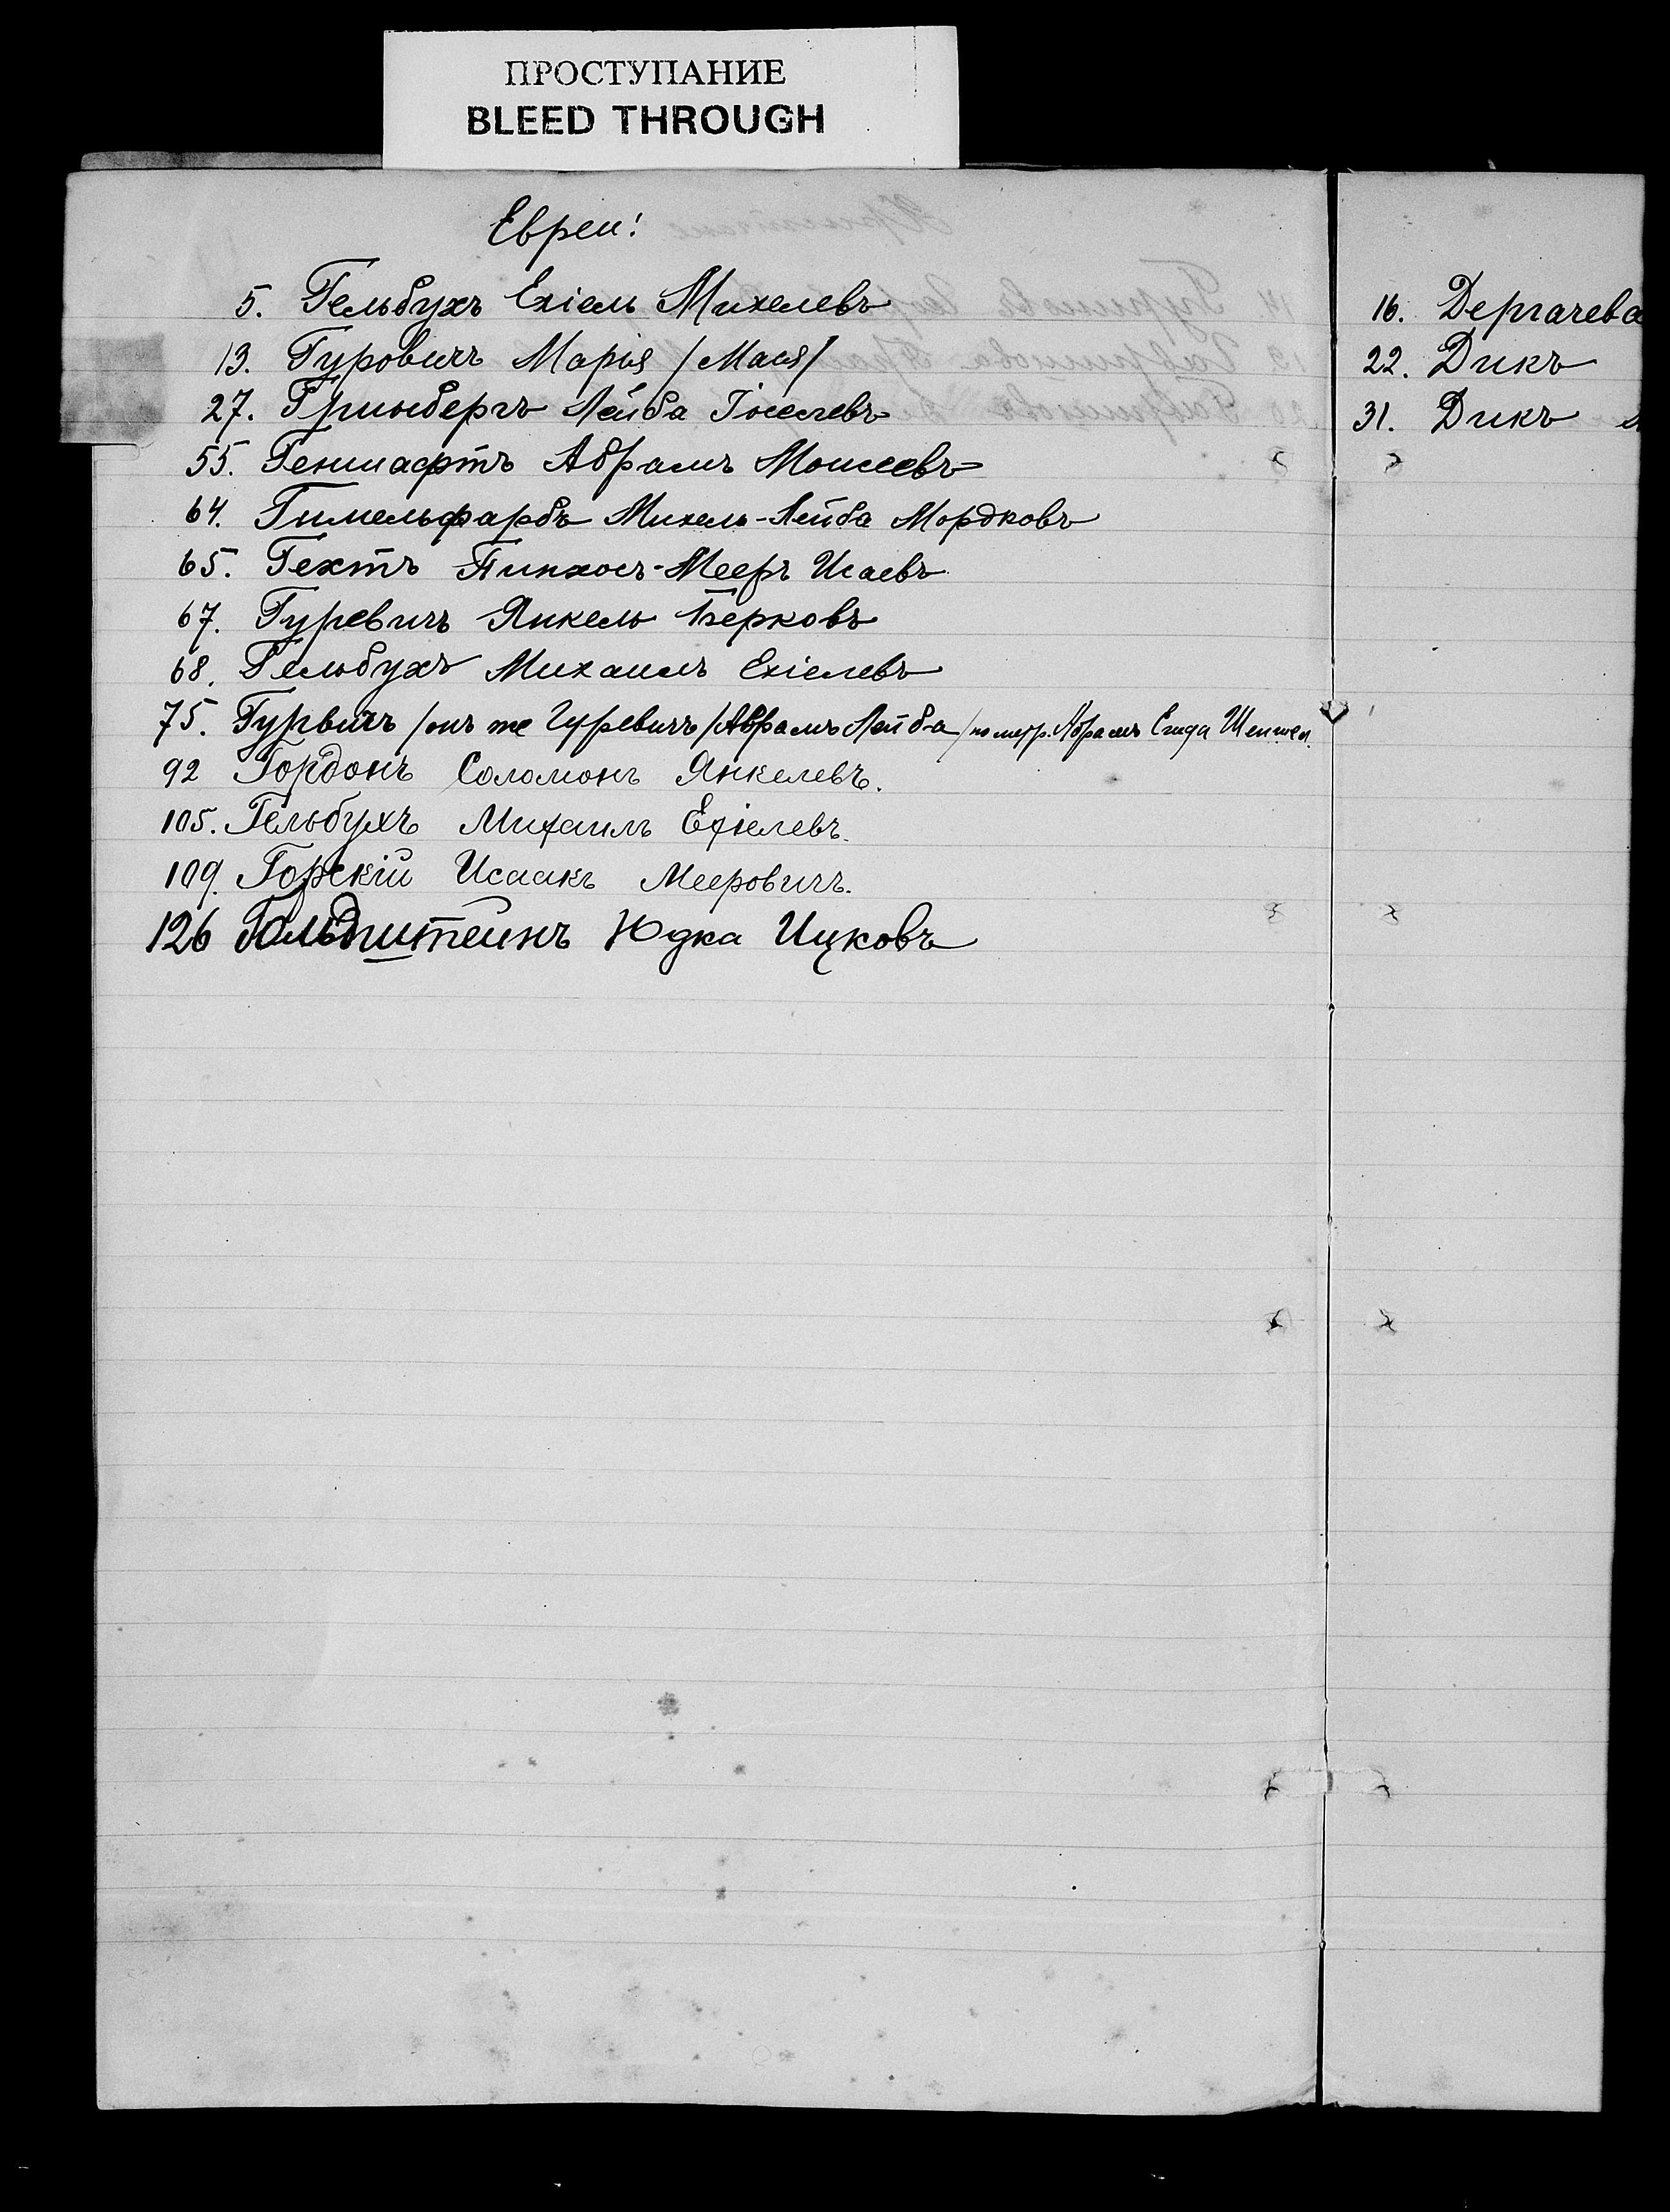 ПРОСТУПАНИЕ
BLEED THROUGH
Евреи:
5. Гельбухъ Ехіель Михелевъ
13. Гуровичъ Марія /Мася/
27. Гринбергъ Лейба Іоселевъ
55. Геншафтъ Абрамъ Моисеевъ
64. Гимельфарбъ Михель-Лейба Мордковъ
65. Гехтъ Пинхосъ-Мееръ Исаевъ
67. Гуревичъ Янкель Берковъ
68. Гельбухъ Михаилъ Ехіелевъ
75. Гурвичъ /онъ же Гуревичъ/ Абрамъ Лейба /по метр. Абрамъ
92 Гордонъ Соломонъ Янкелевъ.
105. Гельбухъ Михаилъ Ехіелевъ.
109. Горскій Исаакъ Мееровичъ.
126 Гольдштейнъ Юдка Ицковъ
16. Дергачева
22. Дикъ
31. Дикъ